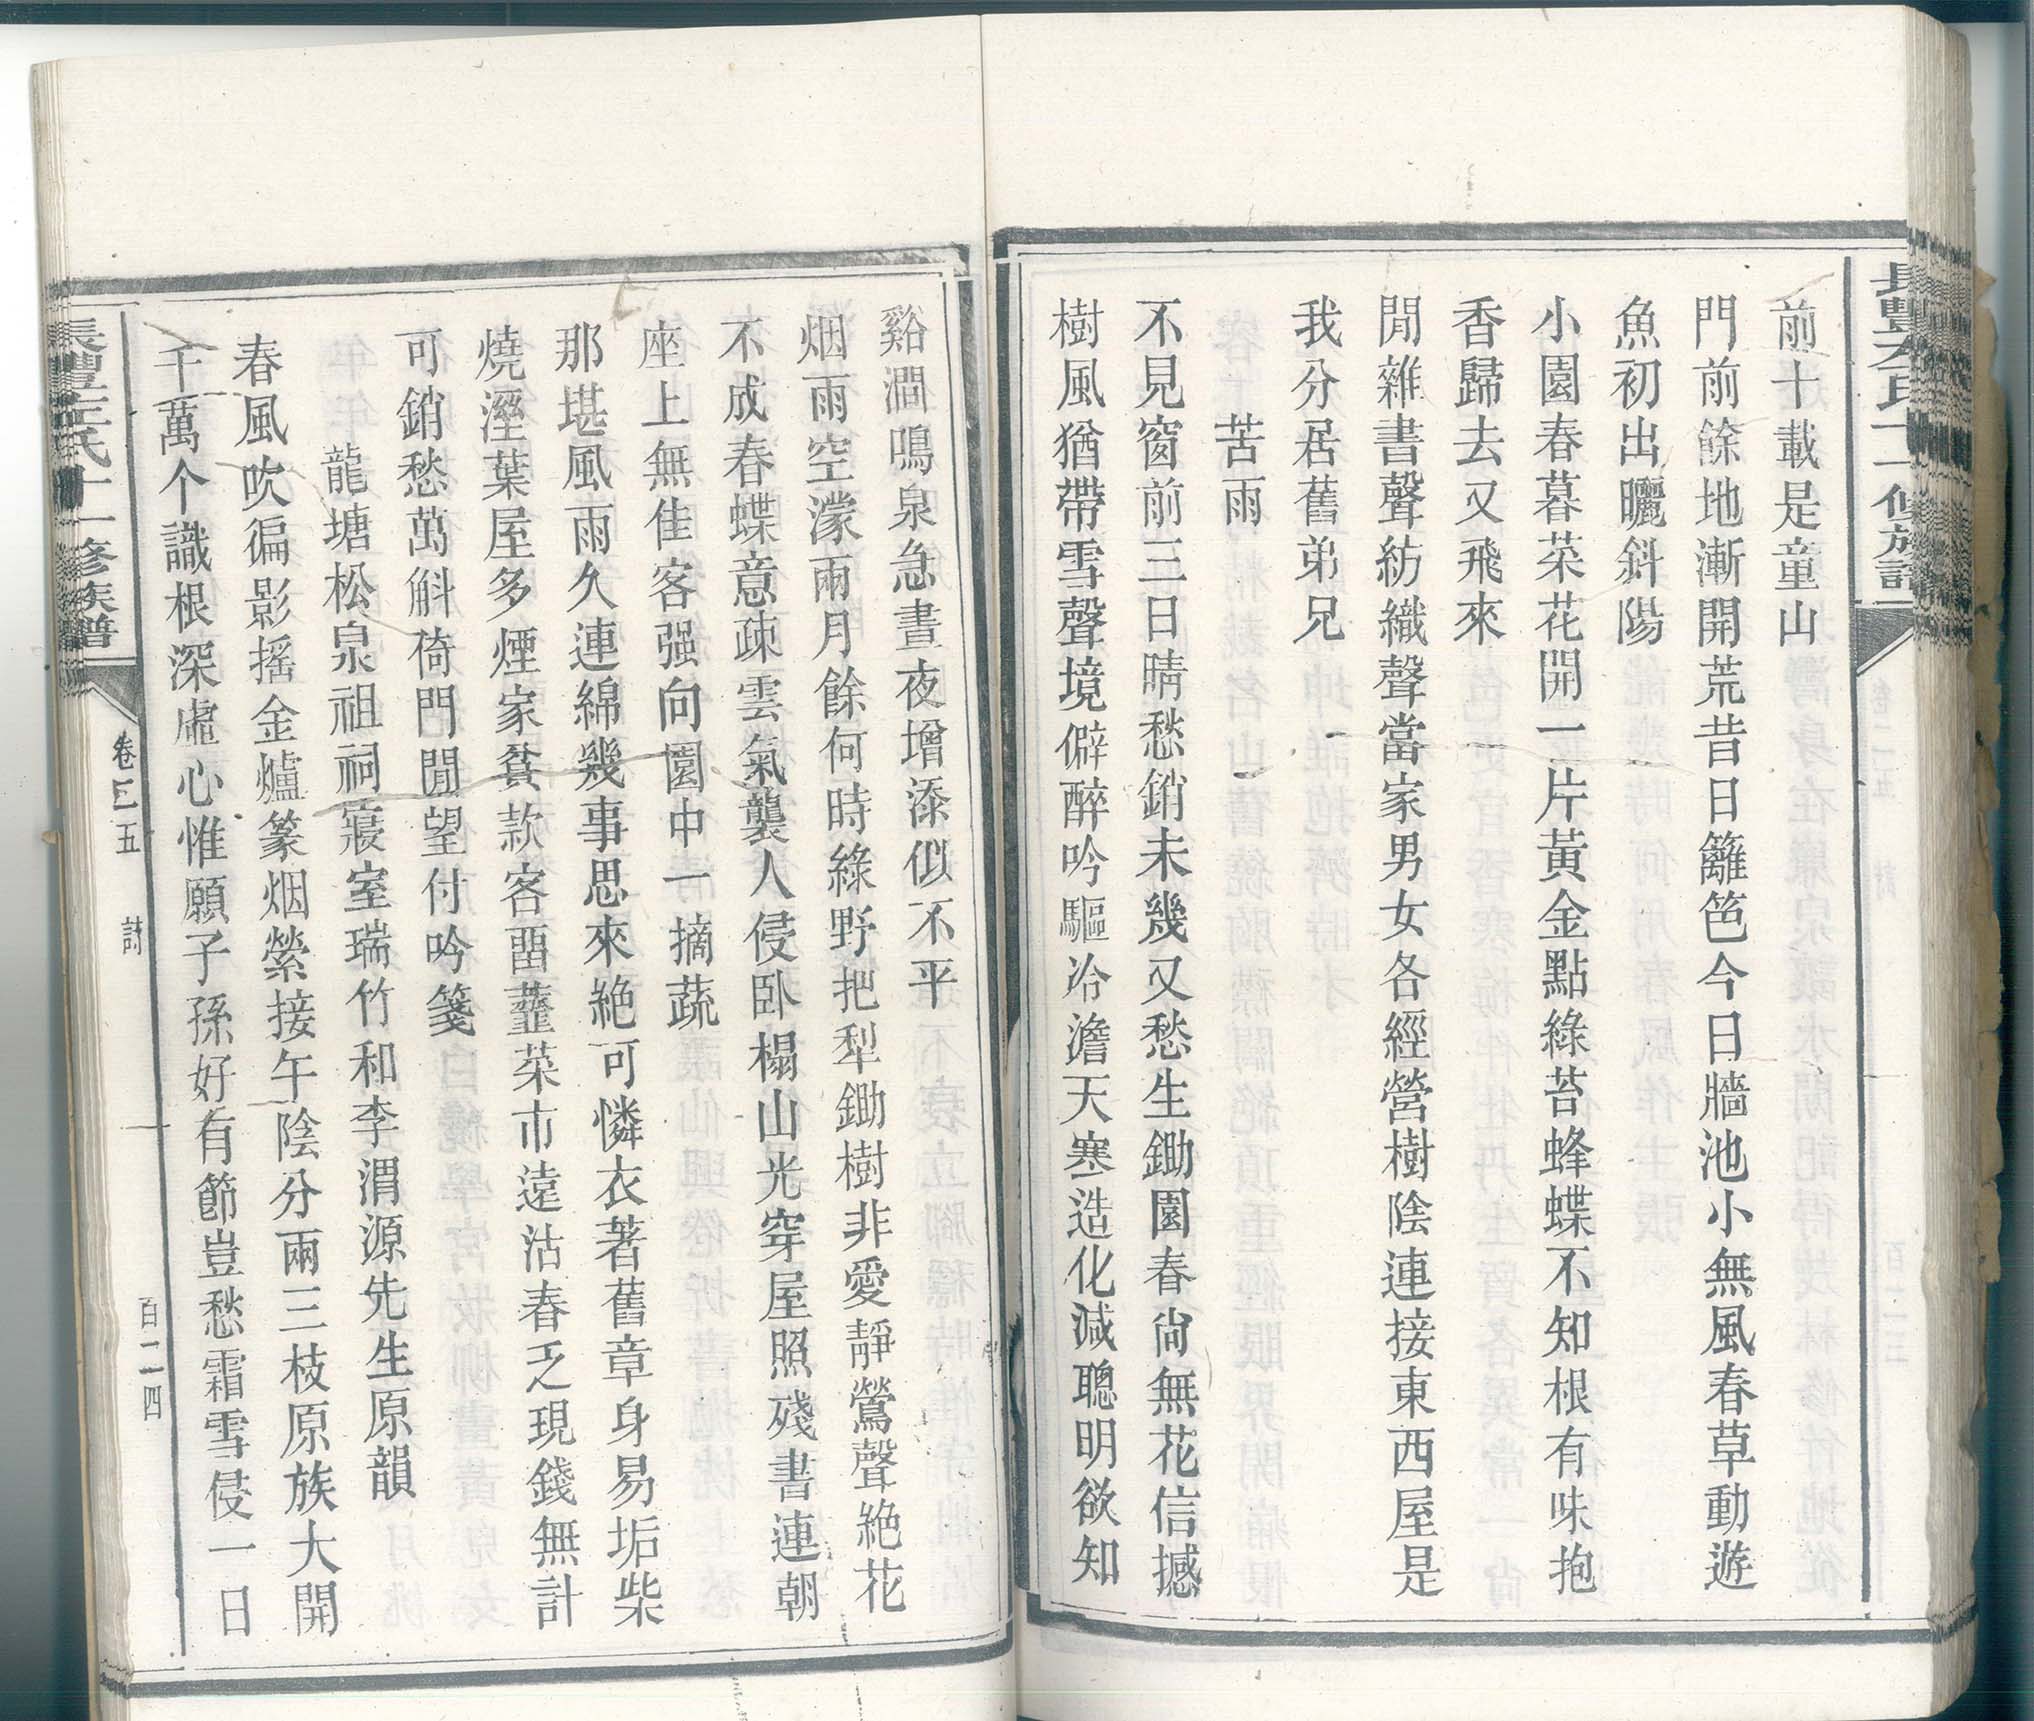 前十載是童山
門前餘地漸開荒昔日籬笆今日牆池小無風春草動遊
魚初出曬斜陽
小園春暮菜花開一片黃金點綠苔蜂蝶不知根有味抱
香歸去又飛來
閒雜書聲紡織聲當家男女各經營樹陰連接東西屋是
我分居舊弟兄
苦雨
不見窗前三日晴愁銷未幾又愁生鋤園春尙無花信撼
樹風猶帶雪聲境僻醉吟驅冷澹天寒造化減聰明欲知
谿澗鳴泉急晝夜增漆似不平
烟雨空濛兩月餘何時綠野把犁鋤樹非愛靜鶯聲絶花
不成春蝶意疎雲氣襲人侵臥榻山光穿屋照殘書連朝
座上無佳客强向園中一摘蔬
那堪風雨久連綿幾事思來絶可憐衣著舊章身易垢柴
燒溼葉屋多煙家貧款客畱虀菜市遠沽春乏現錢無計
可銷愁萬斛倚門閒望付吟箋
龍塘松泉祖祠寢室瑞竹和李渭源先生原韻
春風吹徧影摇金爐篆烟縈接午陰分兩三枝原族大開
千萬个識根深虛心惟願子孫好有節豈愁霜雪侵一日
氏十一修族譜
卷三五
詩
百二四